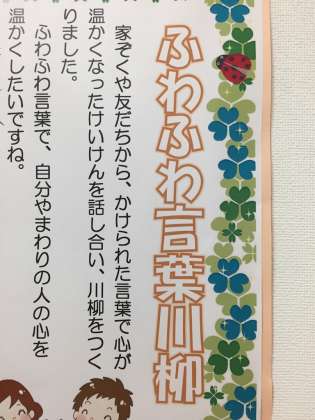 ふわふわ言葉川柳
家ぞくや友だちから、かけられた言葉で心が
温かくなったけいけんを話し合い、川柳をつく
りました。
ふわふわ言葉で、自分やまわりの人の心を
温かくしたいですね。